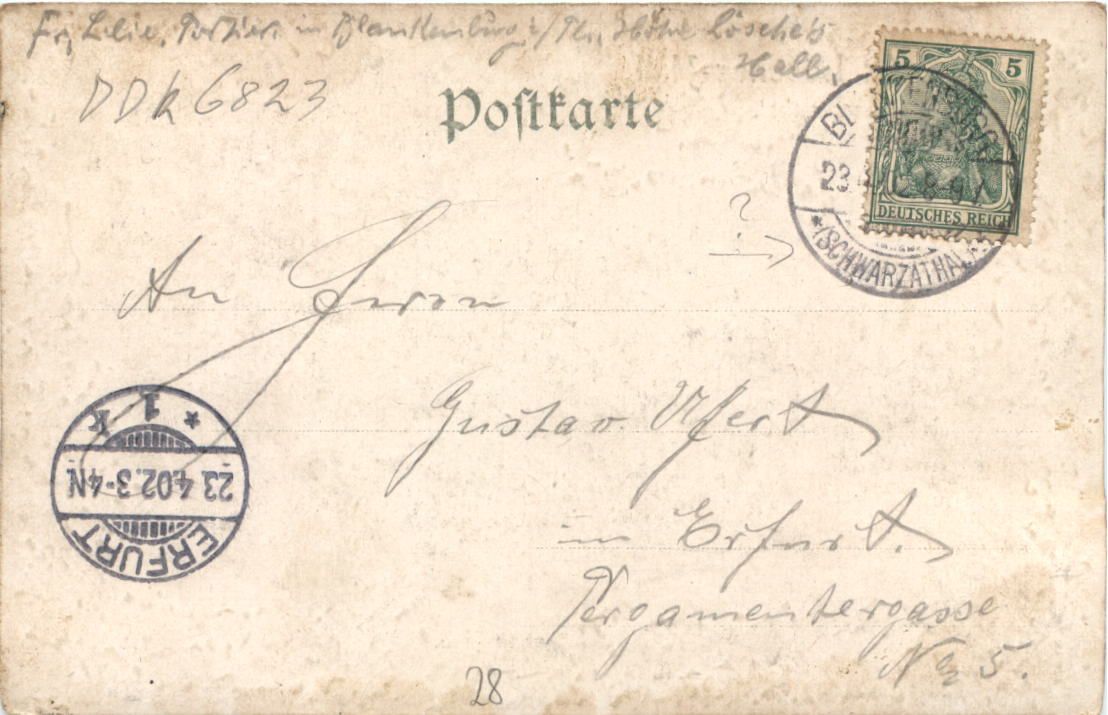 Frz Lilie, Portier in Blankenburg i/Th., Höhe Lösche's
Hall.
DDK 6823
Postkarte
5 5
DEUTSCHES REICH
BLANKENBURG
23.4. 8-9V
*(SCHWARZATHAL)
?
An Herrn
Gustav Ufert
in Erfurt.
Pergamentergasse
No 5.
ERFURT
23.4.02.3-4N.
* 1 k
28